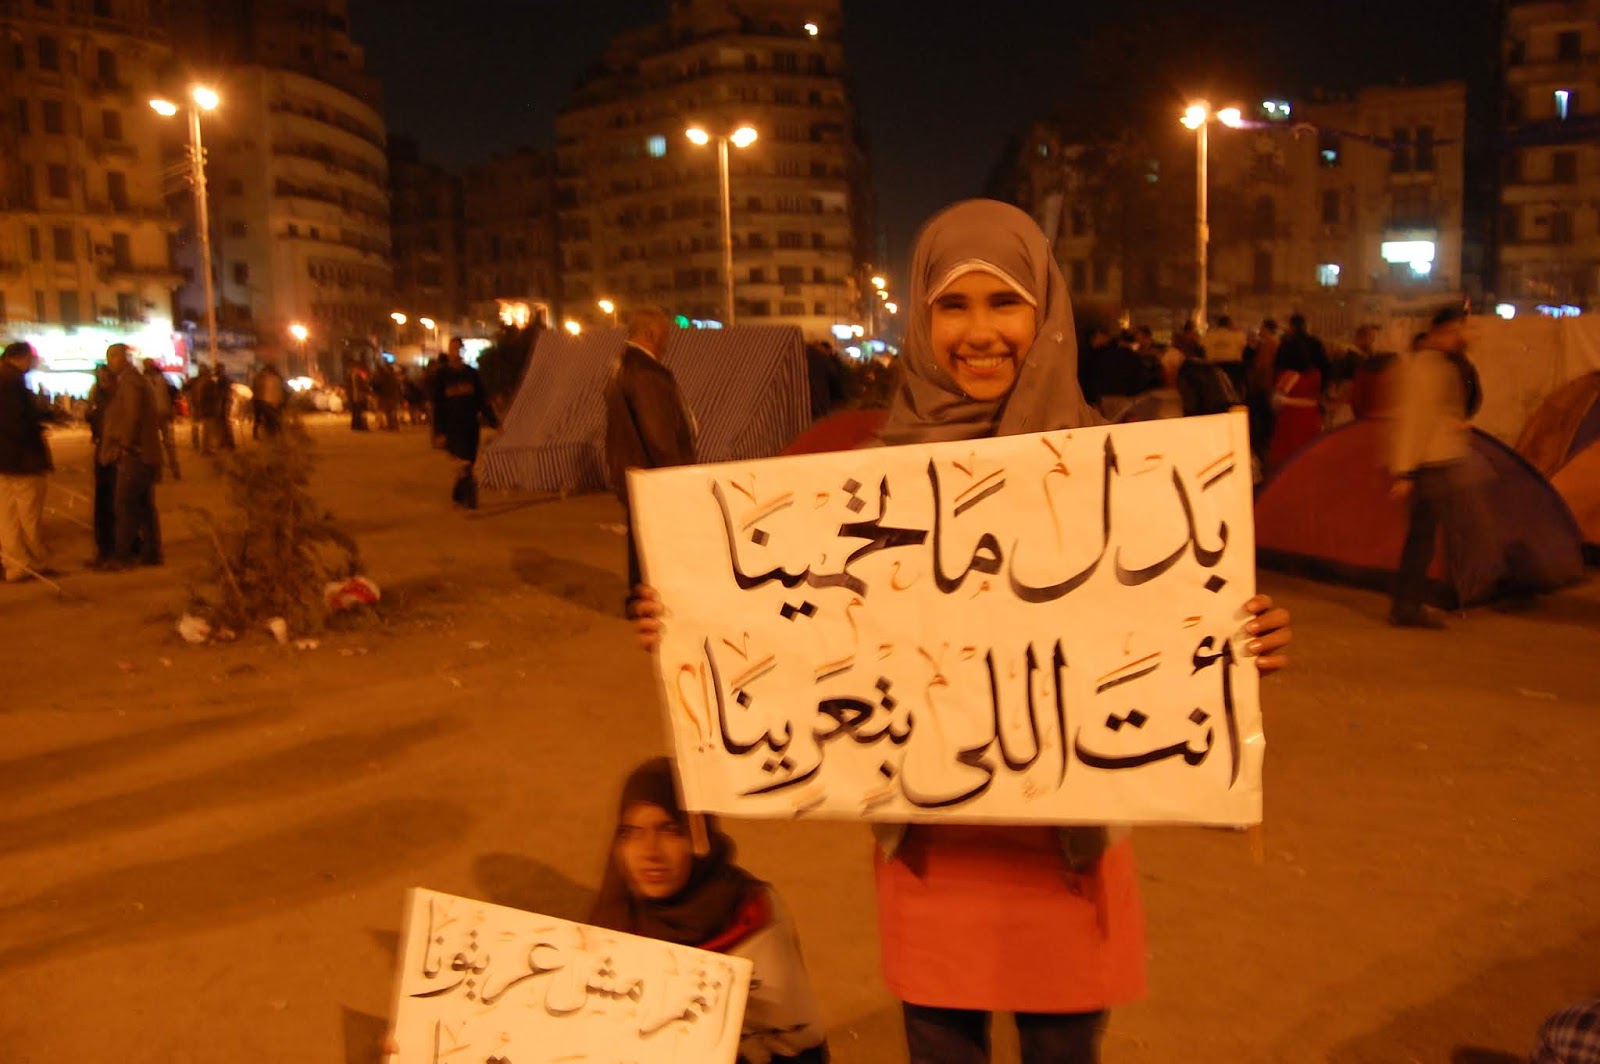 بَدَل مَا تحمينَا
أنتَ اللى بِتِعَرِينَا؟!
انتم مش عريتونا